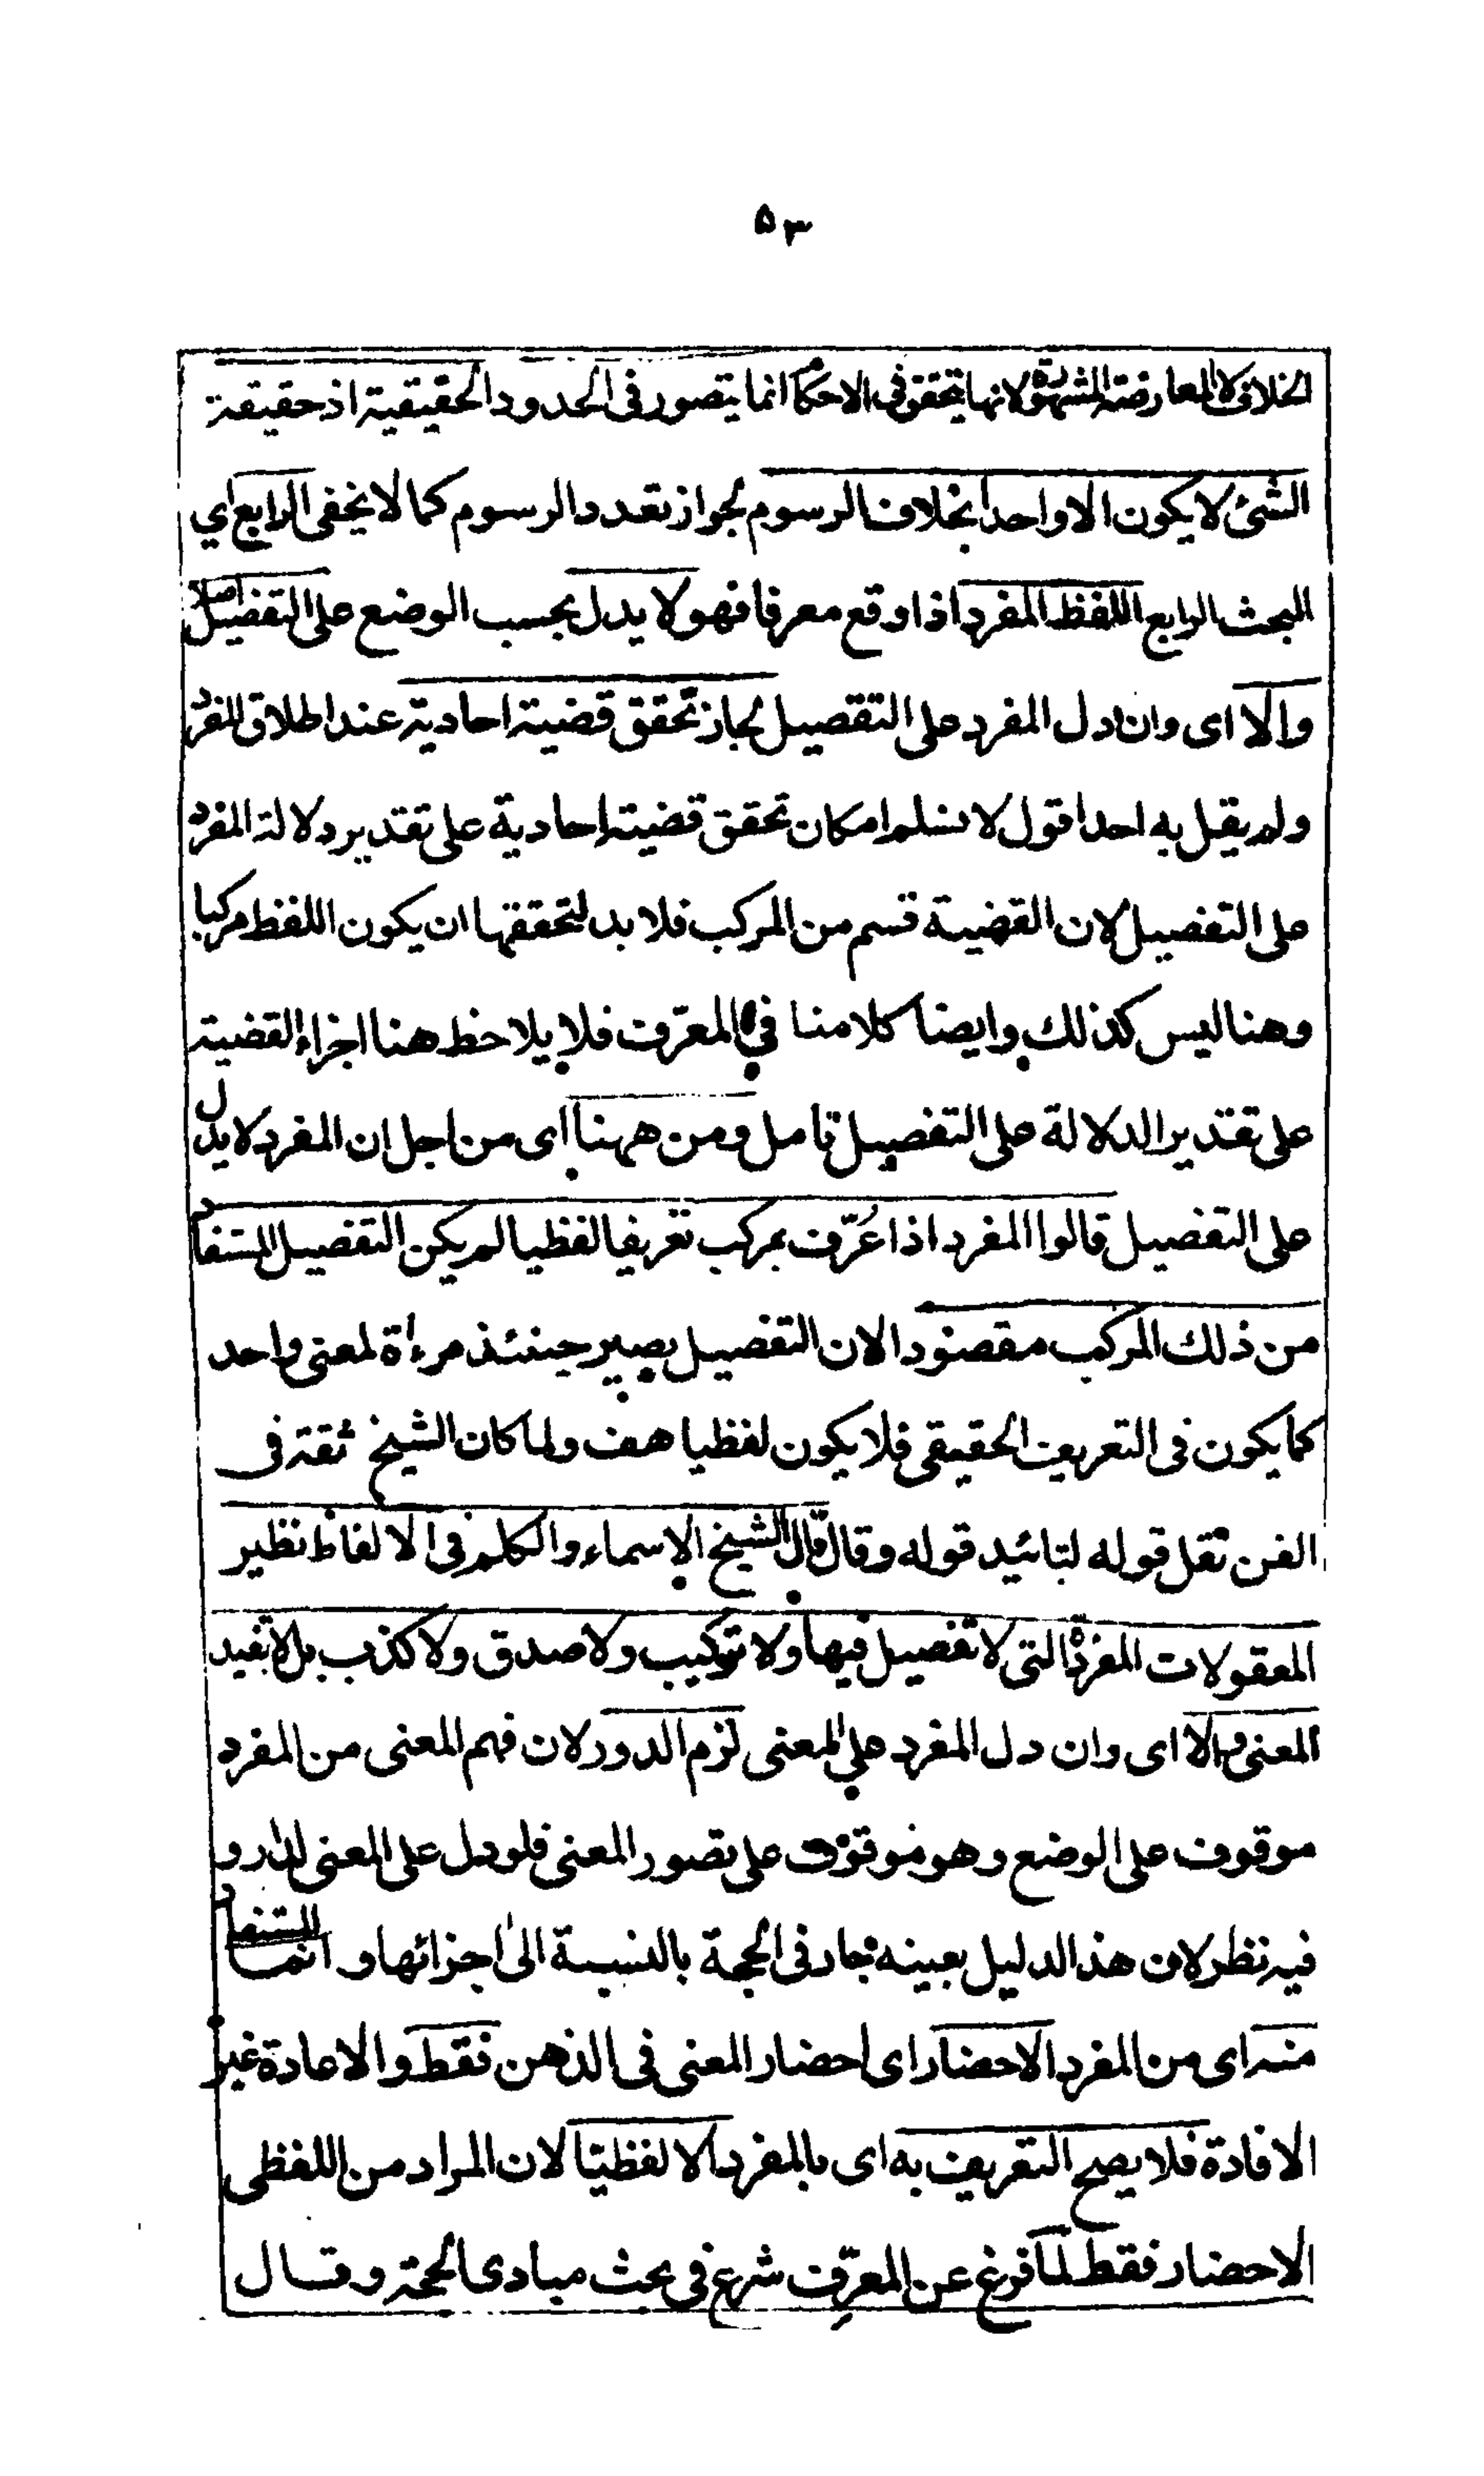 ۵۳
الخلاف لا المعارضة المشهورة لانها تتحقق في الاحكام انما يتصور في الحدود الحقيقية اذ حقيقة
الشئ لا يكون الا واحدا بخلاف الرسوم لجواز تعدد الرسوم كما لا يخفى الرابع اي
البحث الرابع اللفظ المفرد اذا وقع معرفا فهو لا يدل بحسب الوضع على التفصيل اصلا
والا اى وان دل المفرد على التفصيل لجاز تحقق قضية احادية عند اطلاق المفرد
ولم يقل به احد اقول لا نسلم امكان تحقق قضية احادية على تقدير دلالة المفرد
على التفصيل لان القضية قسم من المركب فلا بد لتحققها ان يكون اللفظ مركبا
وهنا ليس كذلك وايضا كلامنا في المعرّف فلا يلاحظ هنا اجزاء القضية
على تقدير الدلالة على التفصيل تامل ومن ههنا اى من اجل ان المفرد لا يدل
على التفصيل قالوا المفرد اذا عُرّف بمركب تعريفا لفظيا لم يكن التفصيل المستفاد
من ذلك المركب مقصودا لان التفصيل يصير حينئذ مرءاة لمعنى واحد
كما يكون فى التعريف الحقيقى فلا يكون لفظيا هف ولما كان الشيخ ثقة فى
الفن نقل قوله لتائيد قوله وقال قال الشيخ الاسماء والكلم فى الالفاظ نظير
المعقولات المفردة التى لا تفصيل فيها ولا تركيب ولا صدق ولا كذب بل لا تفيد
المعنى والا اى وان دل المفرد على المعنى لزم الدور لان فهم المعنى من المفرد
موقوف على الوضع وهو موقوف على تصور المعنى فلو دل على المعنى لدار و
فيه نظر لان هذا الدليل بعينه جار فى الحجة بالنسبة الى اجزائها و انما المستفاد
منه اى من المفرد الاحضار اى احضار المعنى فى الذهن فقط والاعادة غير
الافادة فلا يصح التعريف به اى بالمفرد الا لفظيّا لان المراد من اللفظى
الاحضار فقط لما فرغ عن المعرّف شرع فى بحث مبادى الحجة وقال